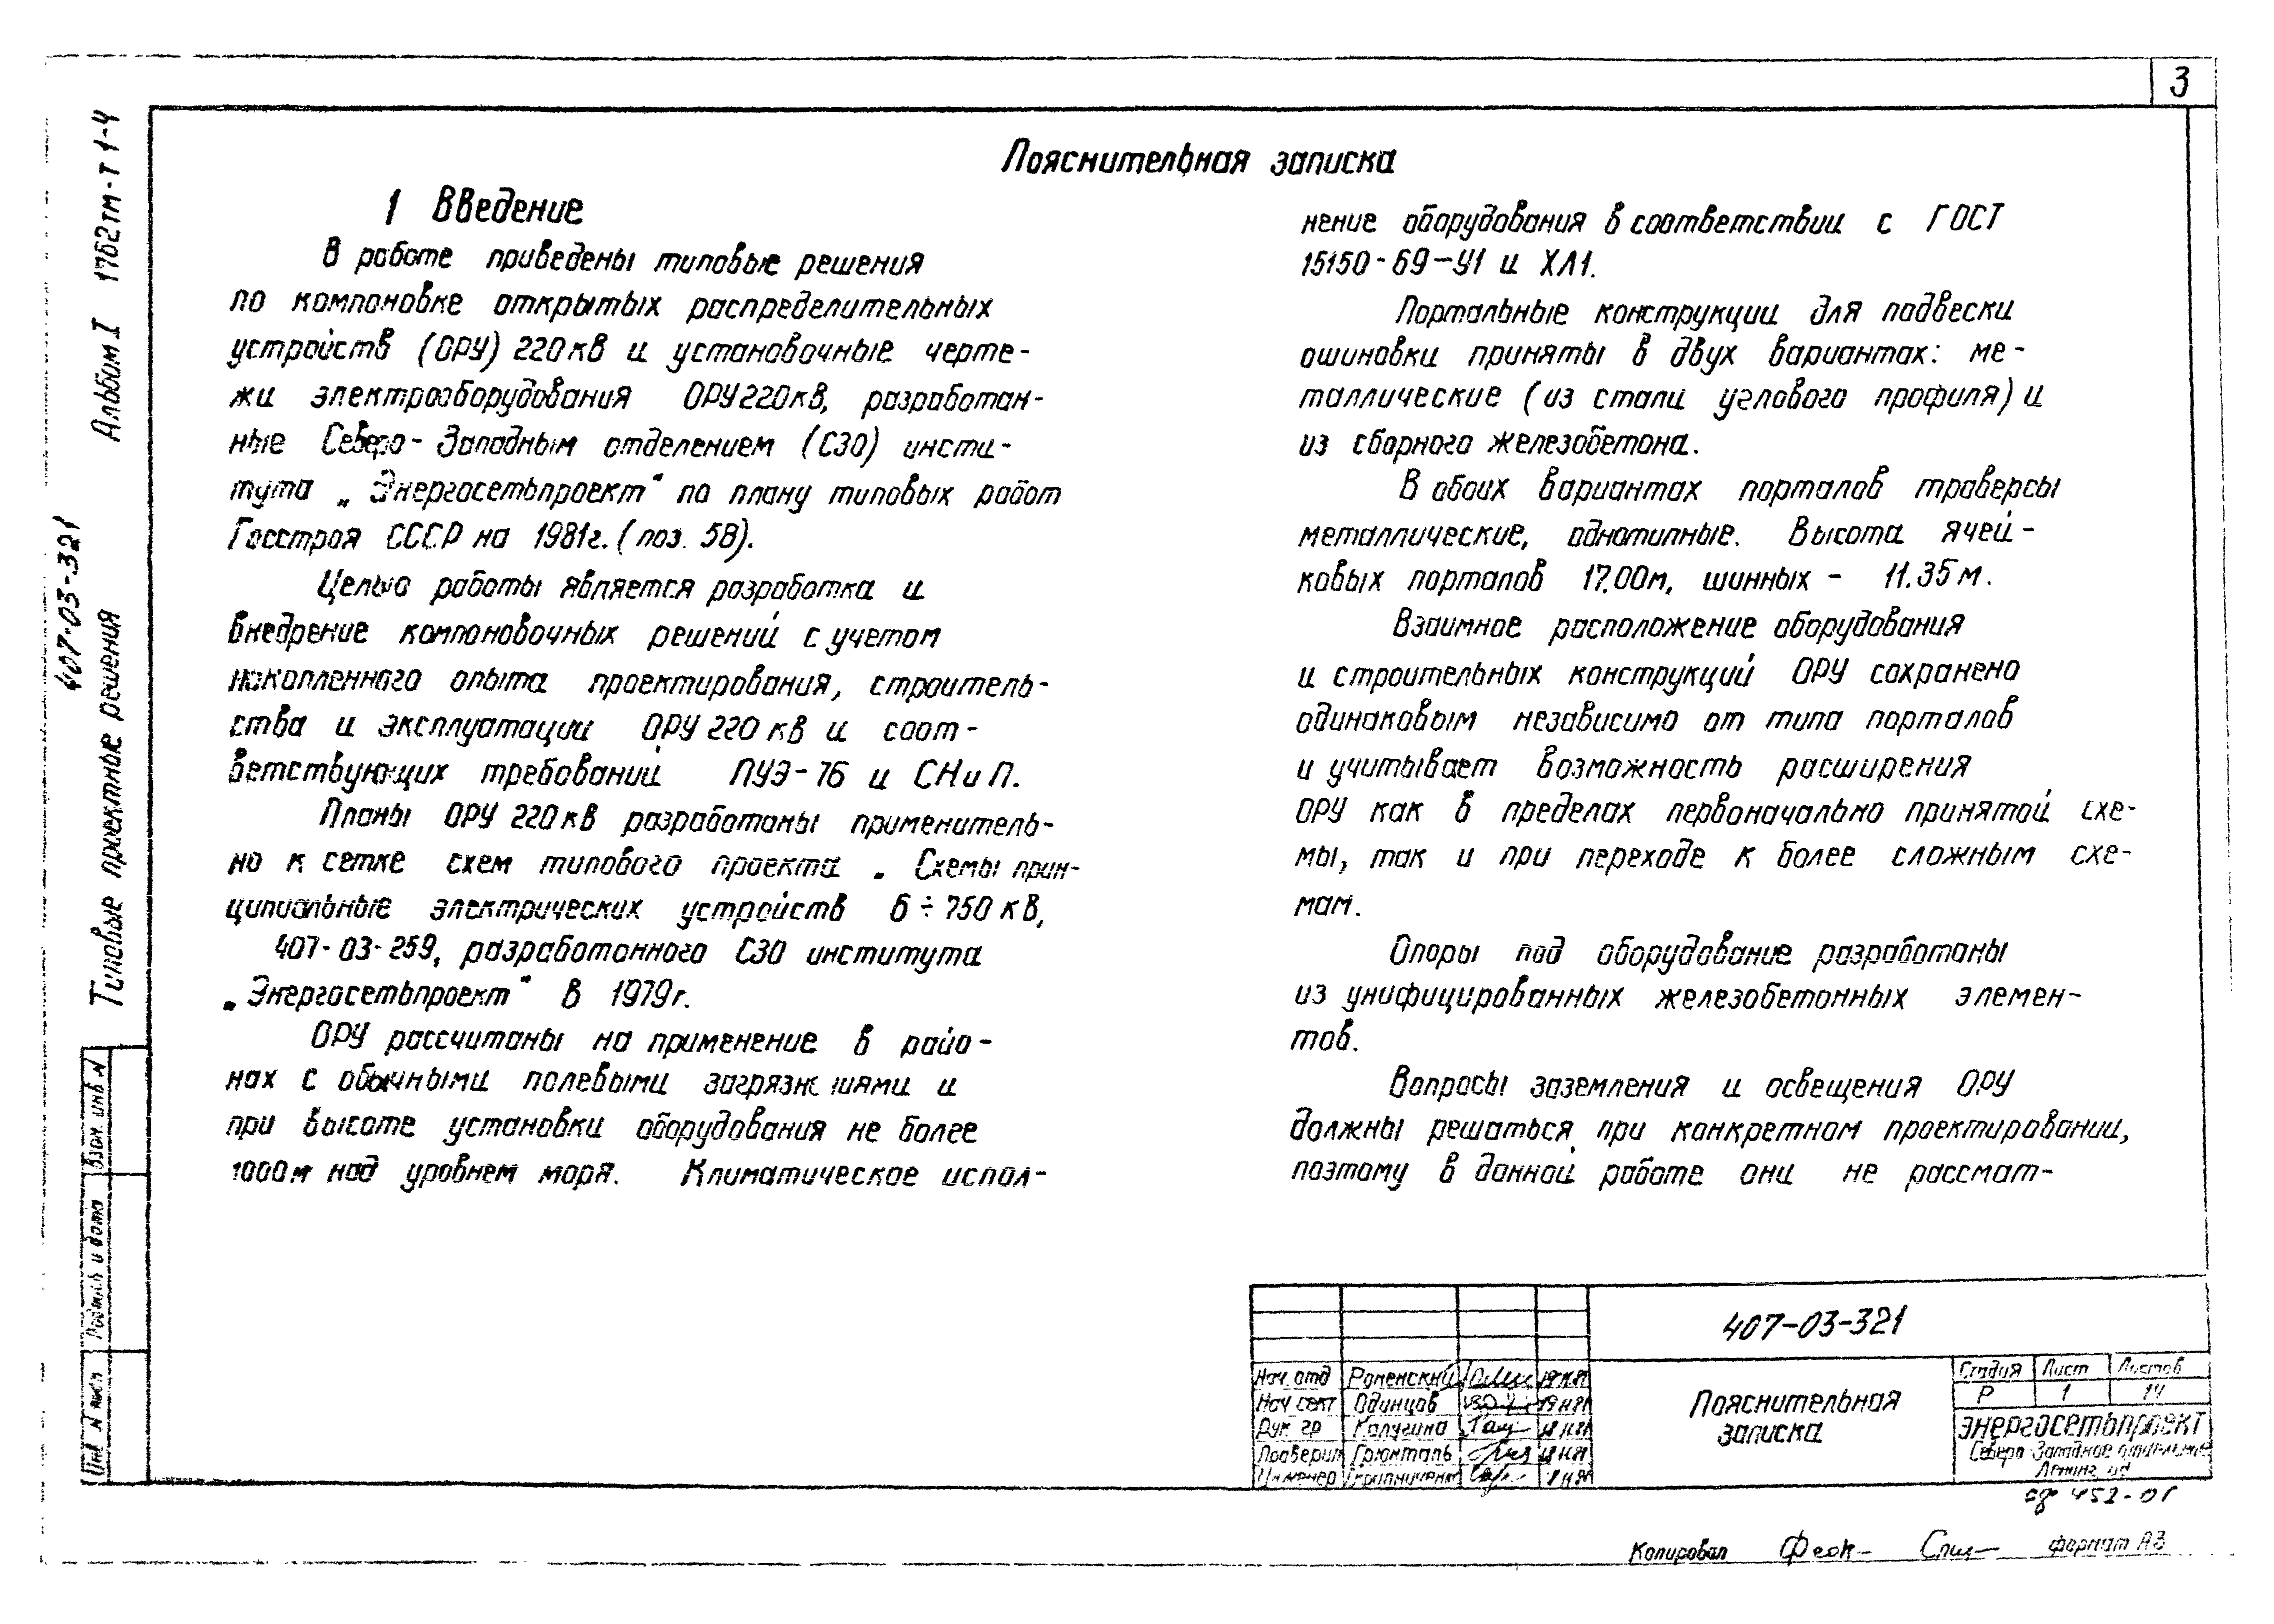 3
Пояснительная записка
1 Введение
В работе приведены типовые решения
по компоновке открытых распределительных
устройств (ОРУ) 220кВ и установочные черте-
жи электрооборудования ОРУ220кВ, разработан-
ные Северо-Западным отделением (СЗО) инсти-
тута „Энергосетьпроект" по плану типовых работ
Госстроя СССР на 1981г. (поз. 5В).
Целью работы является разработка и
внедрение компоновочных решений с учетом
накопленного опыта проектирования, строитель-
ства и эксплуатации ОРУ 220 кВ и соот-
ветствующих требований ПУЭ-76 и СНиП.
Планы ОРУ 220кВ разработаны применитель-
но к сетке схем типового проекта „Схемы прин-
ципиальные электрические устройств 6÷750 кВ,
407-03-259, разработанного СЗО института
„Энергосетьпроект" в 1979г.
ОРУ рассчитаны на применение в райо-
нах с обычными полевыми загрязнениями и
при высоте установки оборудования не более
1000м над уровнем моря. Климатическое испол-
нение оборудования в соответствии с ГОСТ
15150-69-У1 и ХЛ1.
Портальные конструкции для подвески
ошиновки приняты в двух вариантах: ме-
таллические (из стали углового профиля) и
из сборного железобетона.
В обоих вариантах порталов траверсы
металлические, однотипные. Высота ячей-
ковых порталов 17.00м, шинных - 11.35м.
Взаимное расположение оборудования
и строительных конструкций ОРУ сохранено
одинаковым независимо от типа порталов
и учитывает возможность расширения
ОРУ как в пределах первоначально принятой схе-
мы, так и при переходе к более сложным схе-
мам.
Опоры под оборудование разработаны
из унифицированных железобетонных элемен-
тов.
Вопросы заземления и освещения ОРУ
должны решаться при конкретном проектировании,
поэтому в данной работе они не рассмат-
407-03-321
Типовые проектные решения Альбом I 1762тм-т 1-4
Взам. инв N
Подпись и дата
Инв N подл
407-03-321
Нач. отд Роменский
Нач сект Одинцов
Рук гр Калугина
Проверил Грюнталь
Инженер
Пояснительная
записка
Стадия Лист Листов
Р 1 14
ЭНЕРГОСЕТЬПРОЕКТ
Северо Западное отделение
Ленинград
сф 452-01
Копировал Феок- формат А3